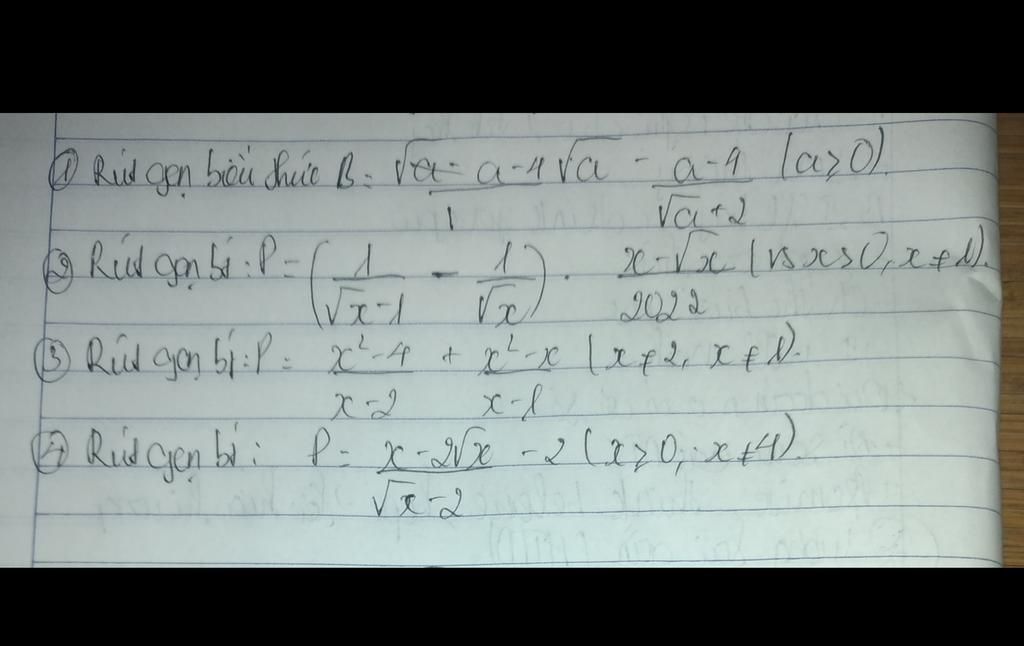 ① Rút gọn biểu thức B = √a - a-4√a/1 - a-4/√a+2 (a≥0).
② Rút gọn bt: P = (1/√x-1 - 1/√x) . x-√x/2022 (vs x>0, x≠1).
③ Rút gọn bt: P = x²-4/x-2 + x²-x/x-1 (x≠2, x≠1).
④ Rút gọn bt: P = x-2√x/√x-2 - 2 (x≥0, x≠4).